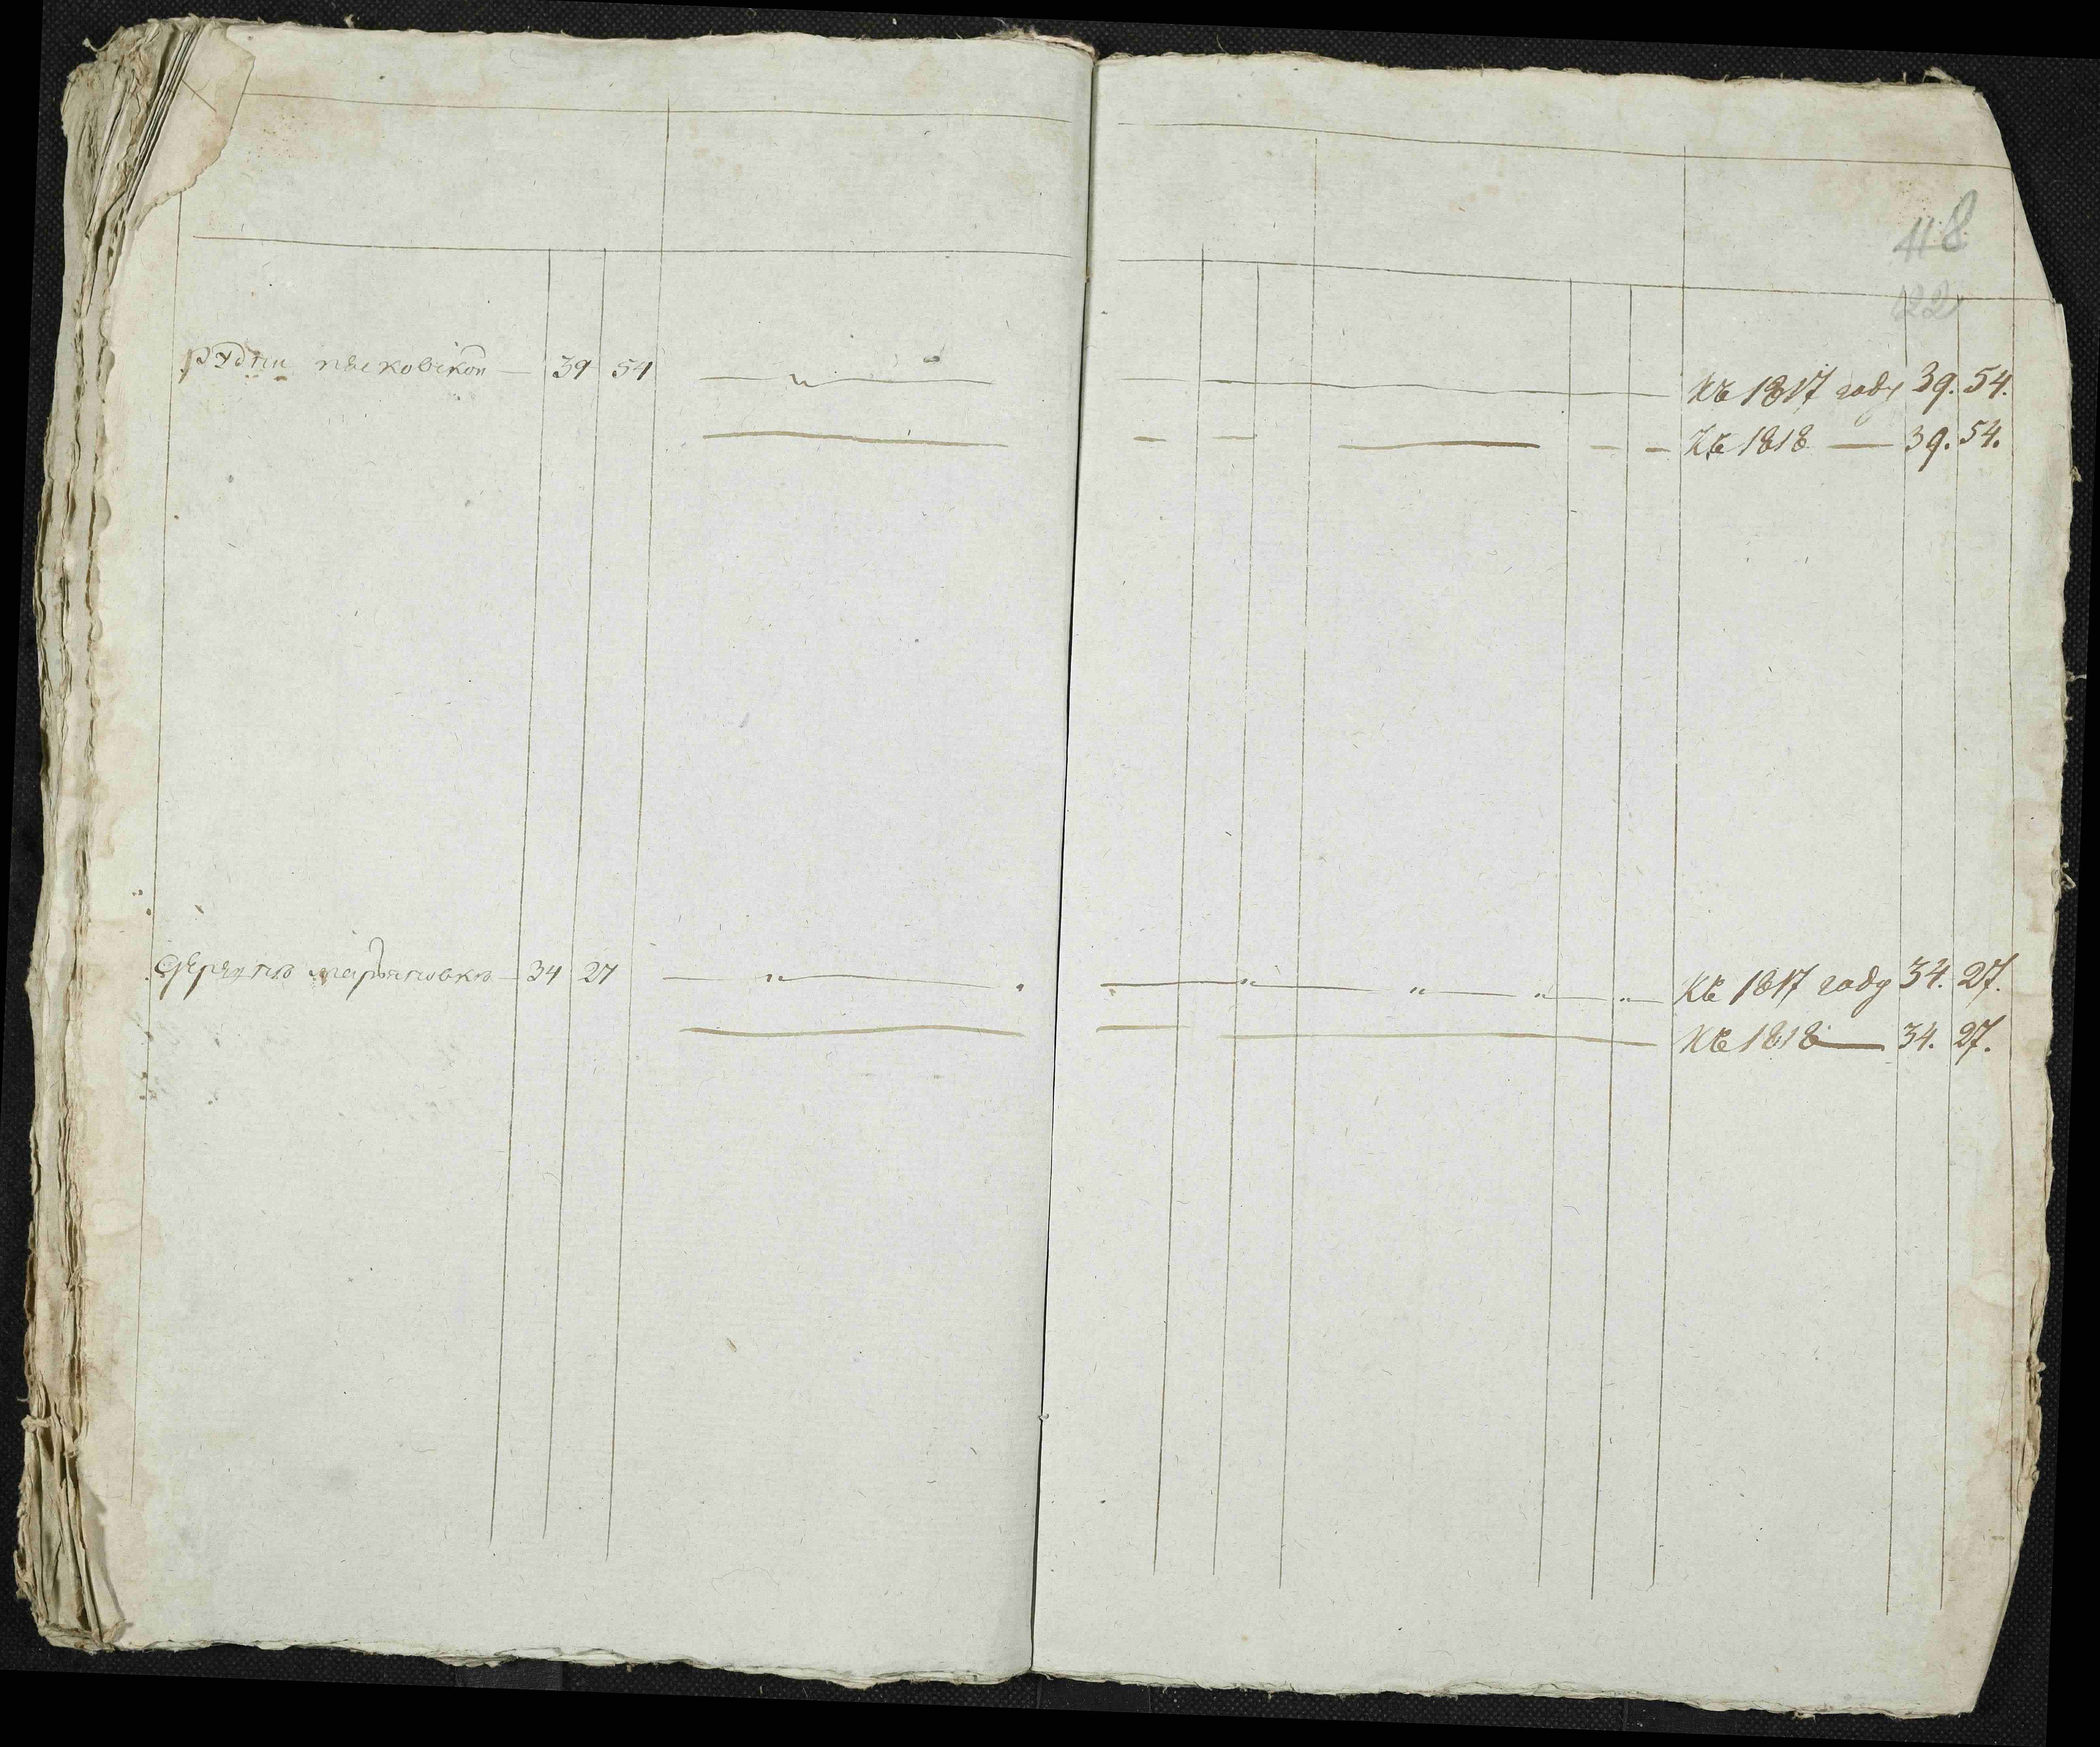 418
22
Рудни песковской — 39 54 — къ 1817 году 39. 54.
къ 1818 — 39. 54.
деревнѣ марьяновкѣ — 34 27 — " — " — " — " — " — къ 1817 году 34. 27.
къ 1818 — 34. 27.